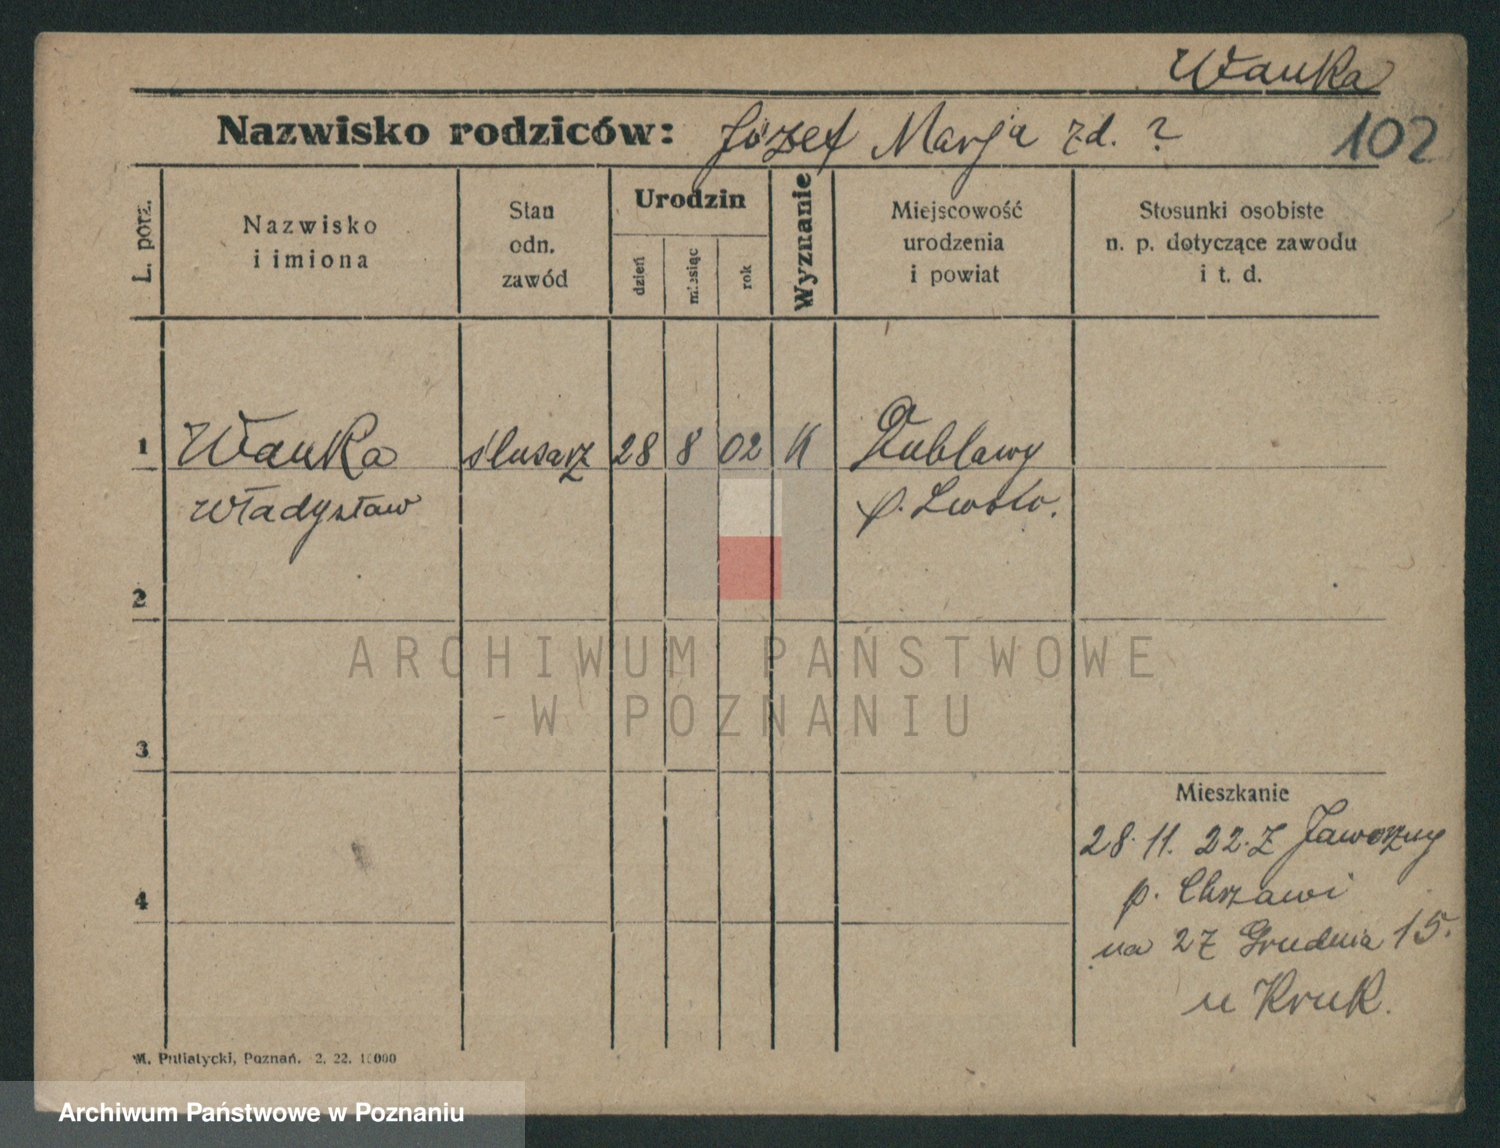 Wanka
Nazwisko rodziców: Józef Marja zd. ?
102
L. porz.
Nazwisko
i imiona
Stan
odn.
zawód
Urodzin
dzień
miesiąc
rok
Wyznanie
Miejscowość
urodzenia
i powiat
Stosunki osobiste
n. p. dotyczące zawodu
i t. d.
1 Wanka ślusarz 28 8 02 K Dublawy
Władysław p. Lwów.
2
3
4
Mieszkanie
28. 11. 22. Z Jaworzny
p. Chrzawi
na 27 Grudnia 15.
u Kruk.
M. Putiatycki, Poznań. 2. 22. 10000
ARCHIWUM PAŃSTWOWE
W POZNANIU
Archiwum Państwowe w Poznaniu